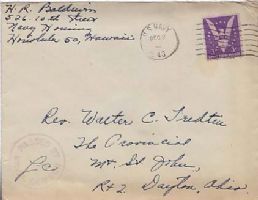 H. R. Baldwin
526 10th Street
Navy Housing
Honolulu 50, Hawaii
U.S. NAVY
Rev. Walter C. Tredtin
The Provincial
Mt. St. John,
R#2 Dayton, Ohio.